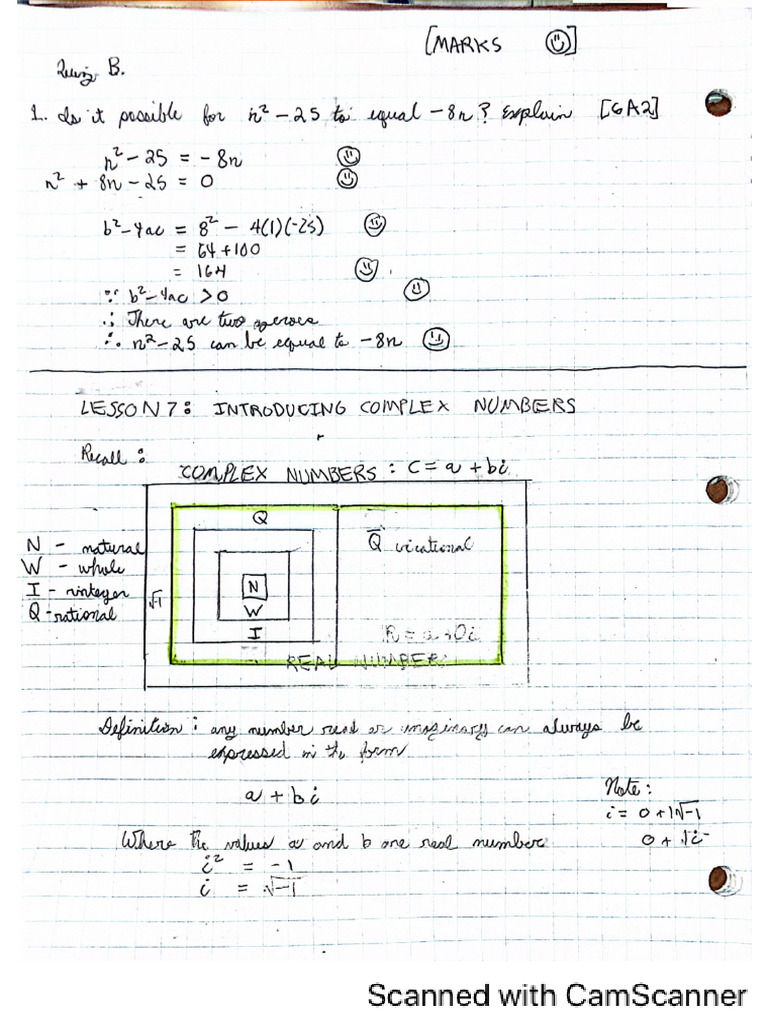 [MARKS ☺]
Quiz B.
1. Is it possible for n² – 25 to equal – 8n? Explain [6A2]
n² – 25 = – 8n ☺
n² + 8n – 25 = 0 ☺
b² – 4ac = 8² – 4(1)(-25) ☺
= 64 + 100
= 164 ☺
∵ b² – 4ac > 0 ☺
∴ There are two zeroes
∴ n² – 25 can be equal to – 8n ☺
LESSON 7: INTRODUCING COMPLEX NUMBERS
Recall :
COMPLEX NUMBERS : C = a + bi
Q
N – natural
W – whole
I – integer
Q – rational
√-1
N
W
I
Q̅ irational
R = a + 0i
REAL NUMBER
Definition : any number real or imaginary can always be
expressed in the form
a + bi
Note :
i = 0 + 1√-1
0 + 1i
Where the values a and b are real number
i² = -1
i = √-1
Scanned with CamScanner